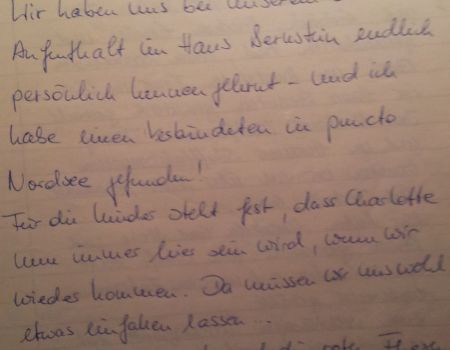 Wir haben uns bei unserem
Aufenthalt im Haus Bernstein endlich
persönlich kennen gelernt – und ich
habe einen Verbündeten in puncto
Nordsee gefunden!
Für die Kinder steht fest, dass Charlotte
nun immer hier sein wird, wenn wir
wieder kommen. Da müssen wir uns wohl
etwas einfallen lassen...